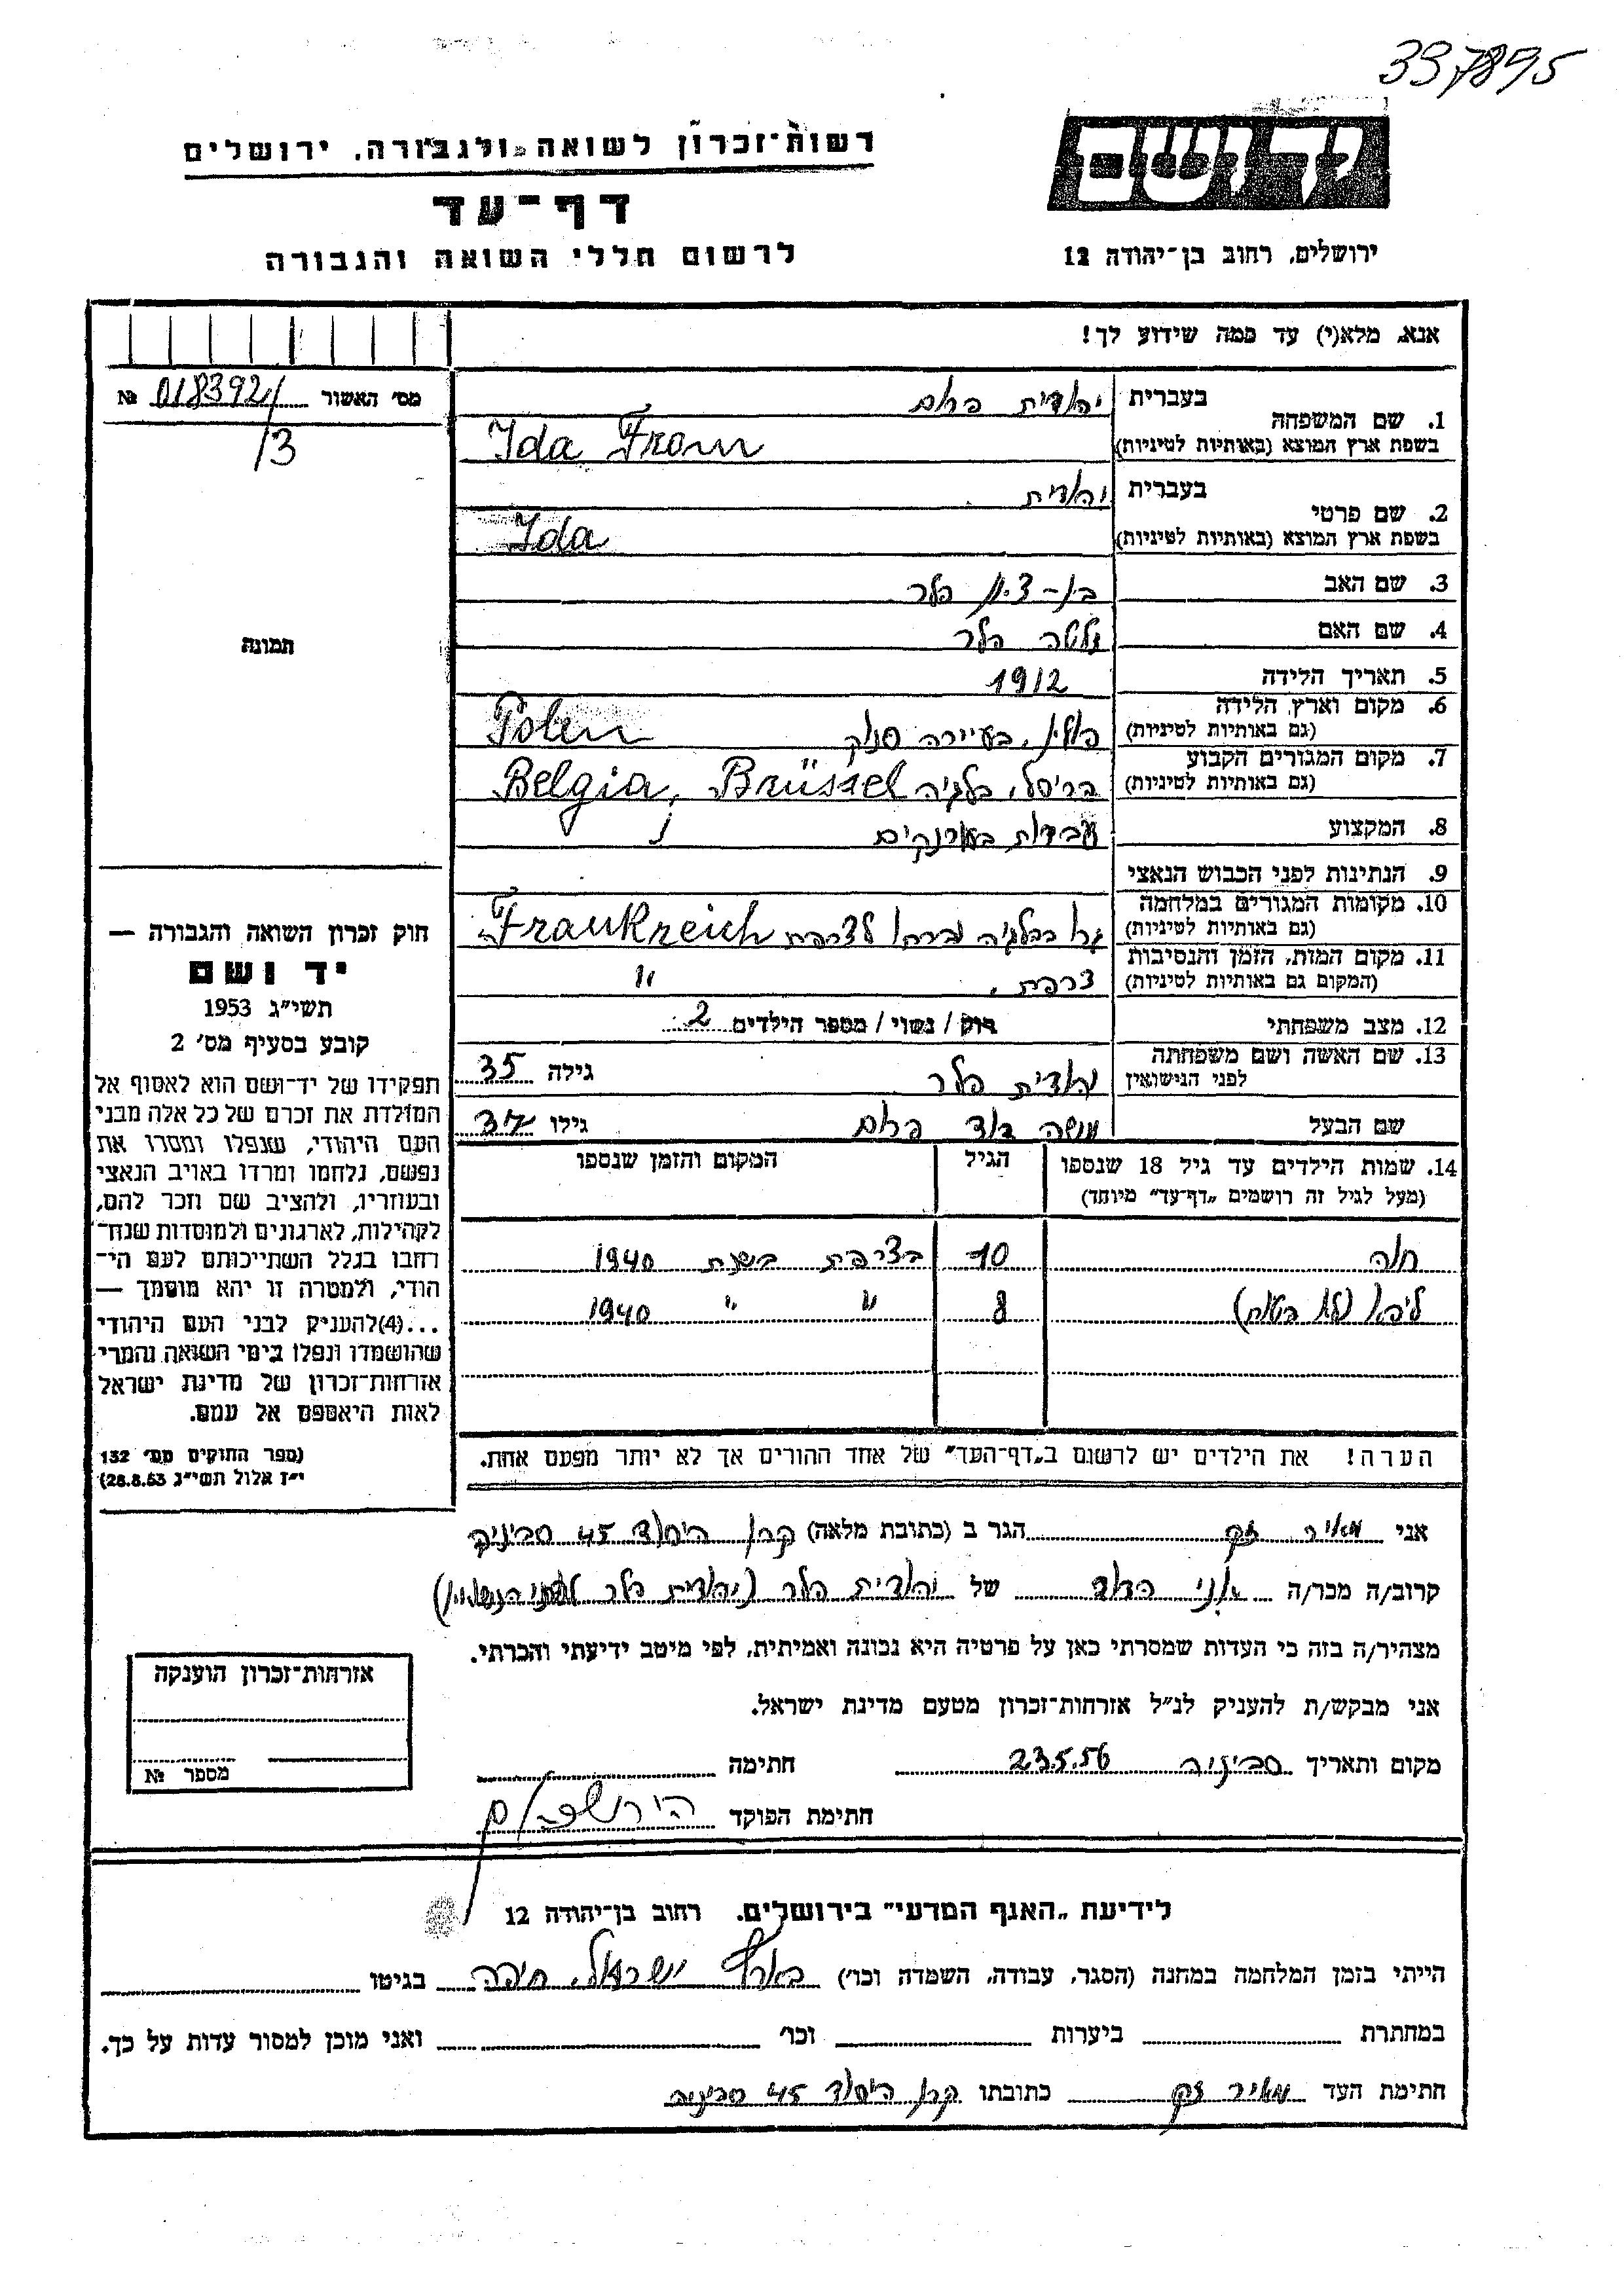 337895
יד ושם
רשות־זכרון לשואה ולגבורה, ירושלים
דף־עד
לרשום חללי השואה והגבורה
ירושלים, רחוב בן־יהודה 12
אנא, מלא(י) עד כמה שידוע לך!
מס׳ האשור 018392/ №
/3
תמונה
1. שם המשפחה
בעברית יהודית פרום
בשפת ארץ המוצא (באותיות לטיניות) Ida From
2. שם פרטי
בעברית יהודית
בשפת ארץ המוצא (באותיות לטיניות) Ida
3. שם האב בן-ציון הלר
4. שם האם זלטה הלר
5. תאריך הלידה 1912
6. מקום וארץ הלידה
(גם באותיות לטיניות) פולין, בעיירה סנוק Polen
7. מקום המגורים הקבוע
(גם באותיות לטיניות) בריסל, בלגיה Belgia, Brüssel
8. המקצוע עבודות בארנקים
9. הנתינות לפני הכבוש הנאצי
10. מקומות המגורים במלחמה
(גם באותיות לטיניות) גרו בבלגיה וברחו לצרפת Frankreich
11. מקום המות, הזמן והנסיבות
(המקום גם באותיות לטיניות) צרפת, "
12. מצב משפחתי רוק / נשוי / מספר הילדים 2
13. שם האשה ושם משפחתה
לפני הנישואין יהודית הלר גילה 35
שם הבעל משה דוד פרום גילו 37
14. שמות הילדים עד גיל 18 שנספו
(מעל לגיל זה רושמים „דף־עד” מיוחד) הגיל המקום והזמן שנספו
חנה 10 בצרפת בשנת 1940
ליבא (לא בטוח) 8 " " 1940
הערה! את הילדים יש לרשום ב„דף־העד” של אחד ההורים אך לא יותר מפעם אחת.
חוק זכרון השואה והגבורה —
יד ושם
תשי״ג 1953
קובע בסעיף מס׳ 2
תפקידו של יד־ושם הוא לאסוף אל
המולדת את זכרם של כל אלה מבני
העם היהודי, שנפלו ומסרו את
נפשם, נלחמו ומרדו באויב הנאצי
ובעוזריו, ולהציב שם וזכר להם,
לקהילות, לארגונים ולמוסדות שנח־
רחבו בגלל השתייכותם לעם הי־
הודי, ולמטרה זו יהא מוסמך —
...(4)להעניק לבני העם היהודי
שהושמדו ונפלו בימי השואה והמרי
אזרחות־זכרון של מדינת ישראל
לאות היאספם אל עמם.
(ספר החוקים מס׳ 132
י״ז אלול תשי״ג 28.8.53)
אני מאיר זק הגר ב (כתובת מלאה) קרן היסוד 45 סביניה
קרוב/ה מכר/ה אני הדוד של יהודית הלר (יהודית הלר לפני הנישואין)
מצהיר/ה בזה כי העדות שמסרתי כאן על פרטיה היא נכונה ואמיתית, לפי מיטב ידיעתי והכרתי.
אני מבקש/ת להעניק לנ״ל אזרחות־זכרון מטעם מדינת ישראל.
מקום ותאריך סביניה 23.5.56 חתימה
חתימת הפוקד
אזרחות־זכרון הוענקה
מספר №
לידיעת „האגף המדעי” בירושלים, רחוב בן־יהודה 12
הייתי בזמן המלחמה במחנה (הסגר, עבודה, השמדה וכו׳) בארץ ישראל, חיפה בגיטו
במחתרת ביערות וכו׳ ואני מוכן למסור עדות על כך.
חתימת העד מאיר זק כתובתו קרן היסוד 45 סביניה